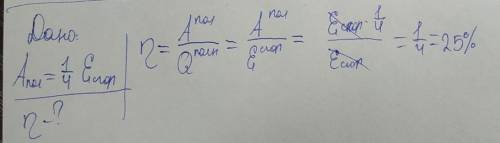 Дано:
Aпол = 1/4 Eсгор
η - ?
η = Aпол/Qполн = Aпол/Eсгор = Eсгор · 1/4 / Eсгор = 1/4 = 25%